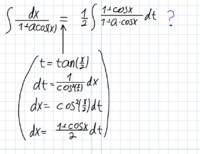 ∫ dx/(1+acos(x)) = 1/2 ∫ (1+cosx)/(1+a·cosx) dt ?
t = tan(x/2)
dt = 1/cos²(x/2) dx
dx = cos²(x/2) dt
dx = (1+cosx)/2 dt